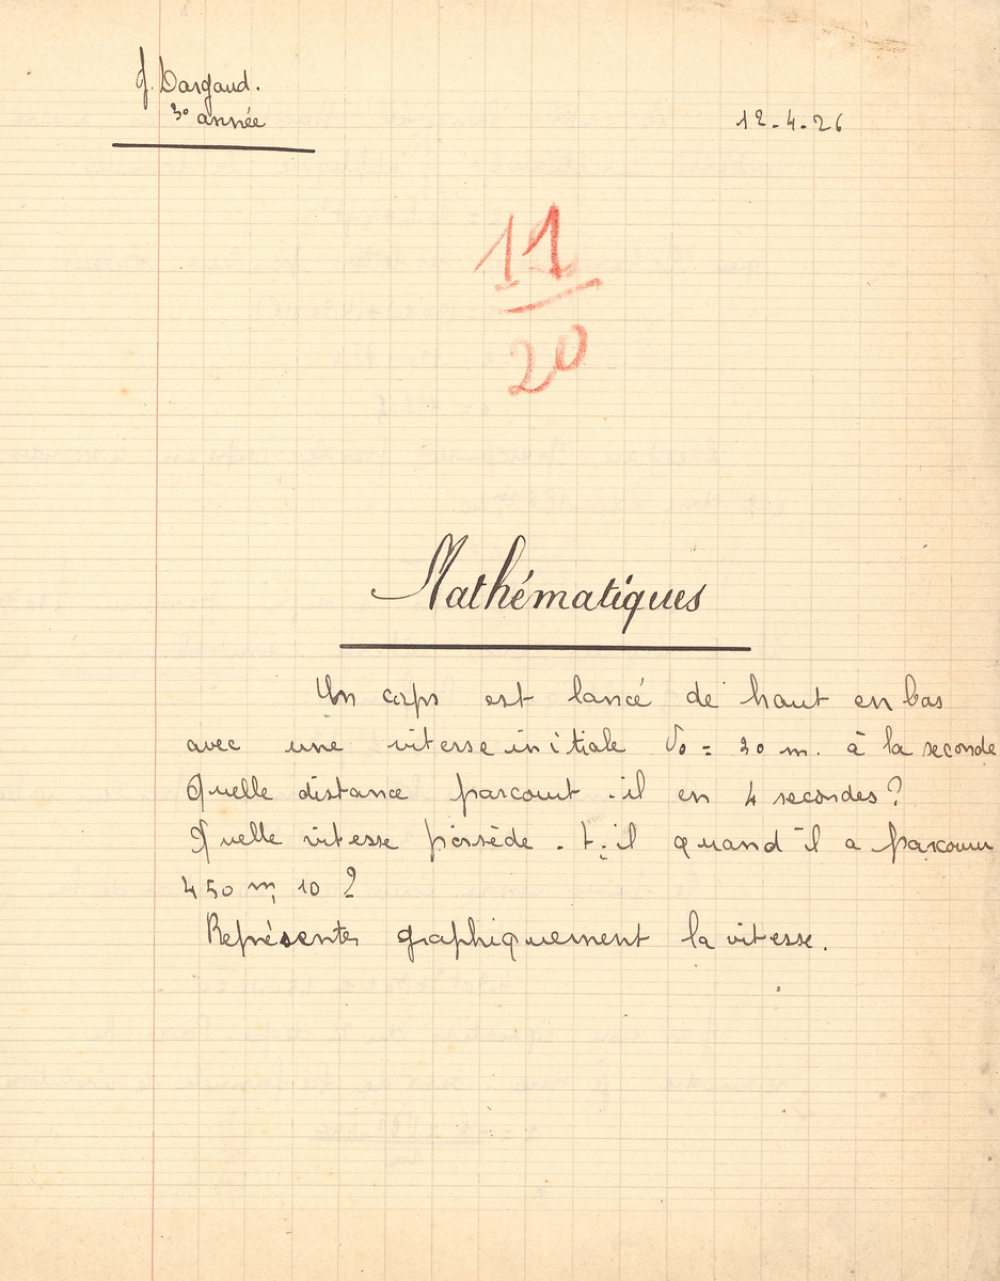 J. Dargaud.
3e année
12-4-26
11
20
Mathématiques
Un corps est lancé de haut en bas
avec une vitesse initiale Vo = 30 m. à la seconde
Quelle distance parcourt-il en 4 secondes ?
Quelle vitesse possède-t-il quand il a parcouru
450 m, 10 ?
Représenter graphiquement la vitesse.